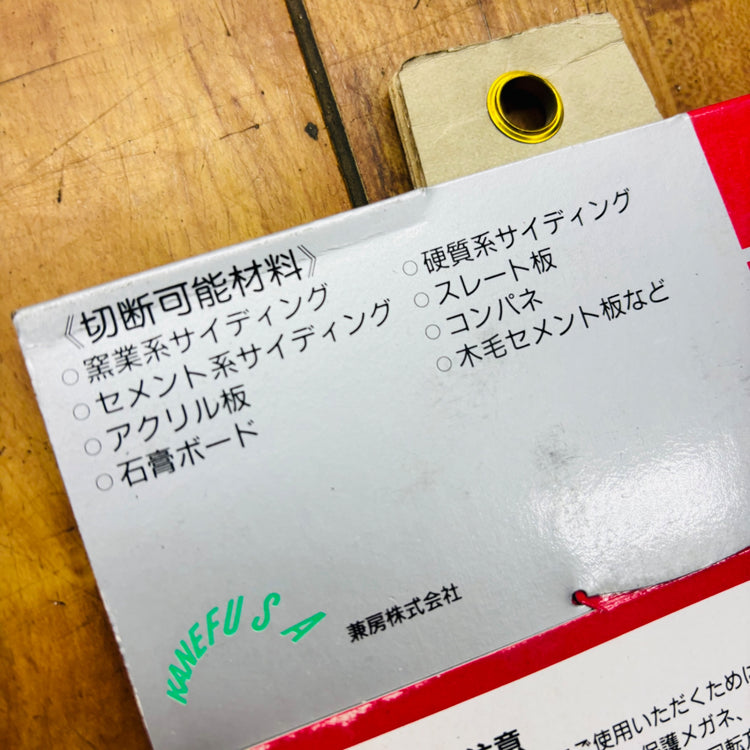 《切断可能材料》
○窯業系サイディング
○セメント系サイディング
○アクリル板
○石膏ボード
○硬質系サイディング
○スレート板
○コンパネ
○木毛セメント板など
KANEFUSA
兼房株式会社
注意
ご使用いただくために
保護メガネ、